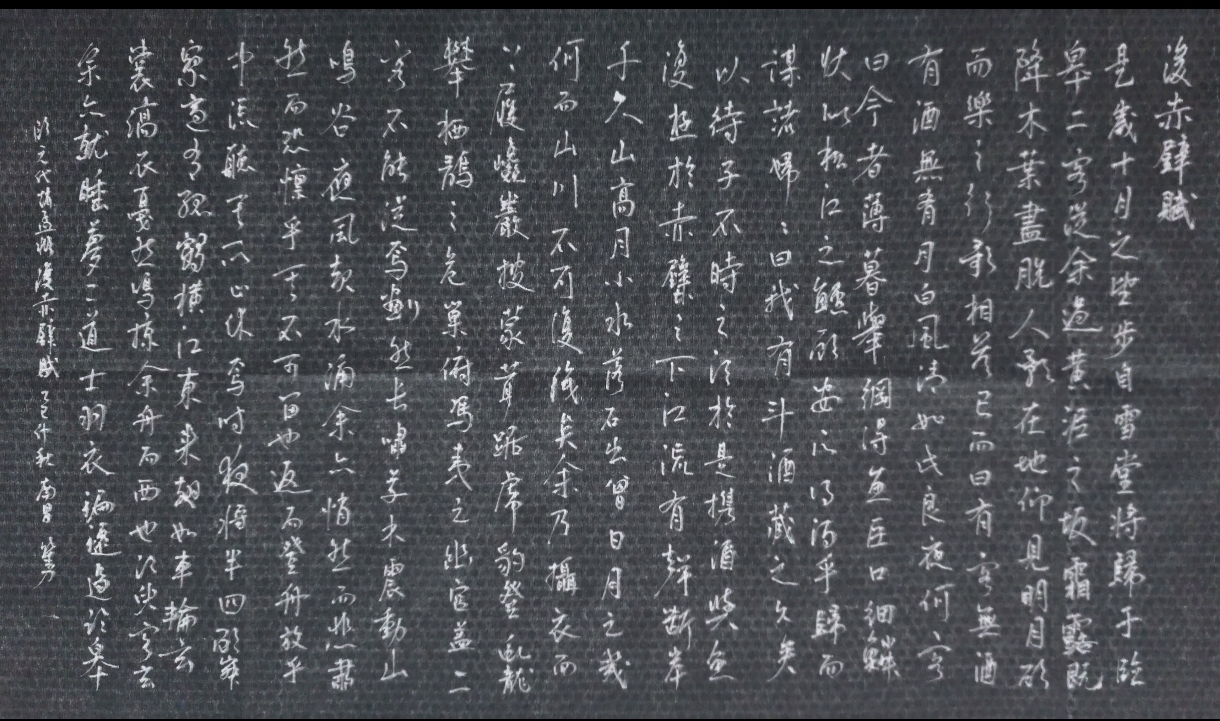 後赤壁賦
是歲十月之望步自雪堂將歸于臨
皋二客從余過黃泥之坂霜露既
降木葉盡脫人影在地仰見明月顧
而樂之行歌相答已而曰有客無酒
有酒無肴月白風清如此良夜何客
曰今者薄暮舉網得魚巨口細鱗
狀似松江之鱸顧安所得酒乎歸而
謀諸婦〻曰我有斗酒藏之久矣
以待子不時之須於是攜酒與魚
復遊於赤壁之下江流有聲斷岸
千尺山高月小水落石出曾日月之幾
何而山川不可復識矣余乃攝衣而
上履巉巖披蒙茸踞虎豹登虬龍
攀栖鶻之危巢俯馮夷之幽宮蓋二
客不能從焉劃然長嘯草木震動山
鳴谷應風起水涌余亦悄然而悲肅
然而恐懍乎其不可留也返而登舟放乎
中流聽其所止休焉時夜將半四顧寂
寥適有孤鶴橫江東來翅如車輪玄
裳縞衣戛然鳴掠余舟而西也須臾客去
余亦就睡夢二道士羽衣翩僊過臨皋
臨元代趙孟頫後赤壁賦 乙巳仲秋 南昌